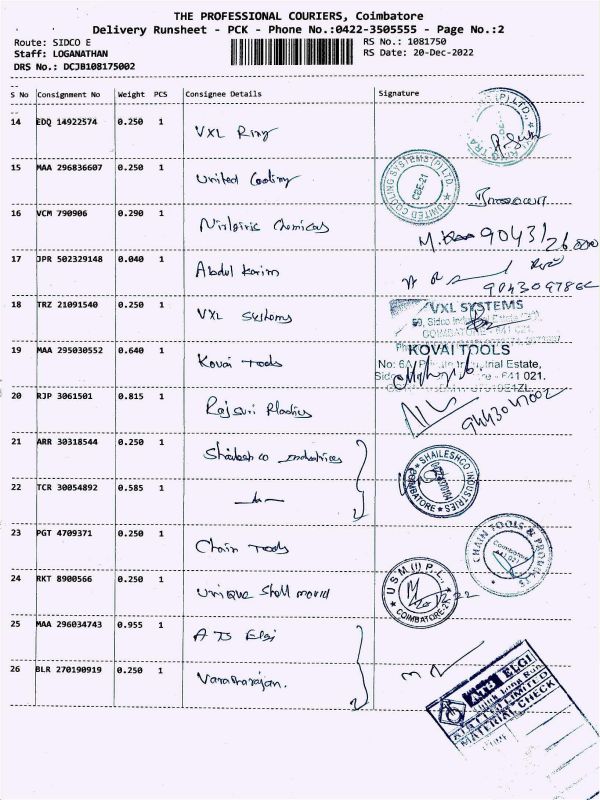 THE PROFESSIONAL COURIERS, Coimbatore
Delivery Runsheet - PCK - Phone No.:0422-3505555 - Page No.:2
Route: SIDCO E
RS No.: 1081750
Staff: LOGANATHAN
RS Date: 20-Dec-2022
DRS No.: DCJB108175002
S No Consignment No Weight PCS Consignee Details Signature
14 EDQ 14922574 0.250 1 VXL Ring
15 MAA 296836607 0.250 1 United Cooling
UNITED COOLING SYSTEMS (P) LTD
CBE-21
16 VCM 790906 0.290 1 Chemicals
17 JPR 502329148 0.040 1 Abdul Karim
18 TRZ 21091540 0.250 1 VXL Systems
VXL SYSTEMS
COIMBATORE - 641 021.
19 MAA 295030552 0.640 1 Kovai Tools
KOVAI TOOLS
Estate,
641 021.
20 RJP 3061501 0.815 1 Plastics
9443047002
21 ARR 30318544 0.250 1 Shaileshco Industries
SHAILESHCO INDUSTRIES
COIMBATORE
22 TCR 30054892 0.585 1
23 PGT 4709371 0.250 1 Chain Tools
CHAIN TOOLS &
Coimbatore
641 021
24 RKT 8900566 0.250 1 Unique Shell mould
USM (I) P.L.
COIMBATORE-21
25 MAA 296034743 0.955 1 ATS Elgi
26 BLR 270190919 0.250 1 Varatharajan.
ATS ELGI
ATS ELGI LIMITED
MATERIAL CHECK